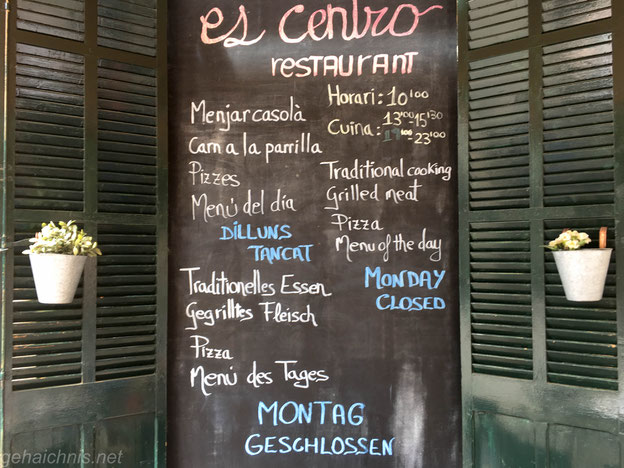 es centro
restaurant
Menjar casolà
Carn a la parrilla
Pizzes
Menú del día
DILLUNS
TANCAT
Horari: 10'00
Cuina: 13'00-15'30
-23'00
Traditional cooking
Grilled meat
Pizza
Menu of the day
MONDAY
CLOSED
Traditionelles Essen
Gegrilltes Fleisch
Pizza
Menú des Tages
MONTAG
GESCHLOSSEN
gehaichnis.net